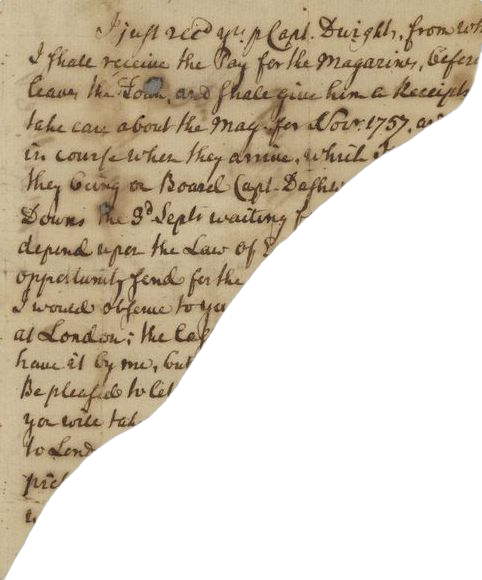 I just rec'd yrs. p Capt. Dwight, from wh
I shall receive the Pay for the Magazines, before
leaves the Town, and shall give him a Receipt
take care about the Mag. for Novr. 1757, a
in course when they arrive, which I
they being on Board Capt. Dash
Downs the 3d Septr waiting f
depend upon the Law of
opportunity send for the
I would observe to you
at London; the
have it by me, but
Be pleased to let
you will tak
to Lond